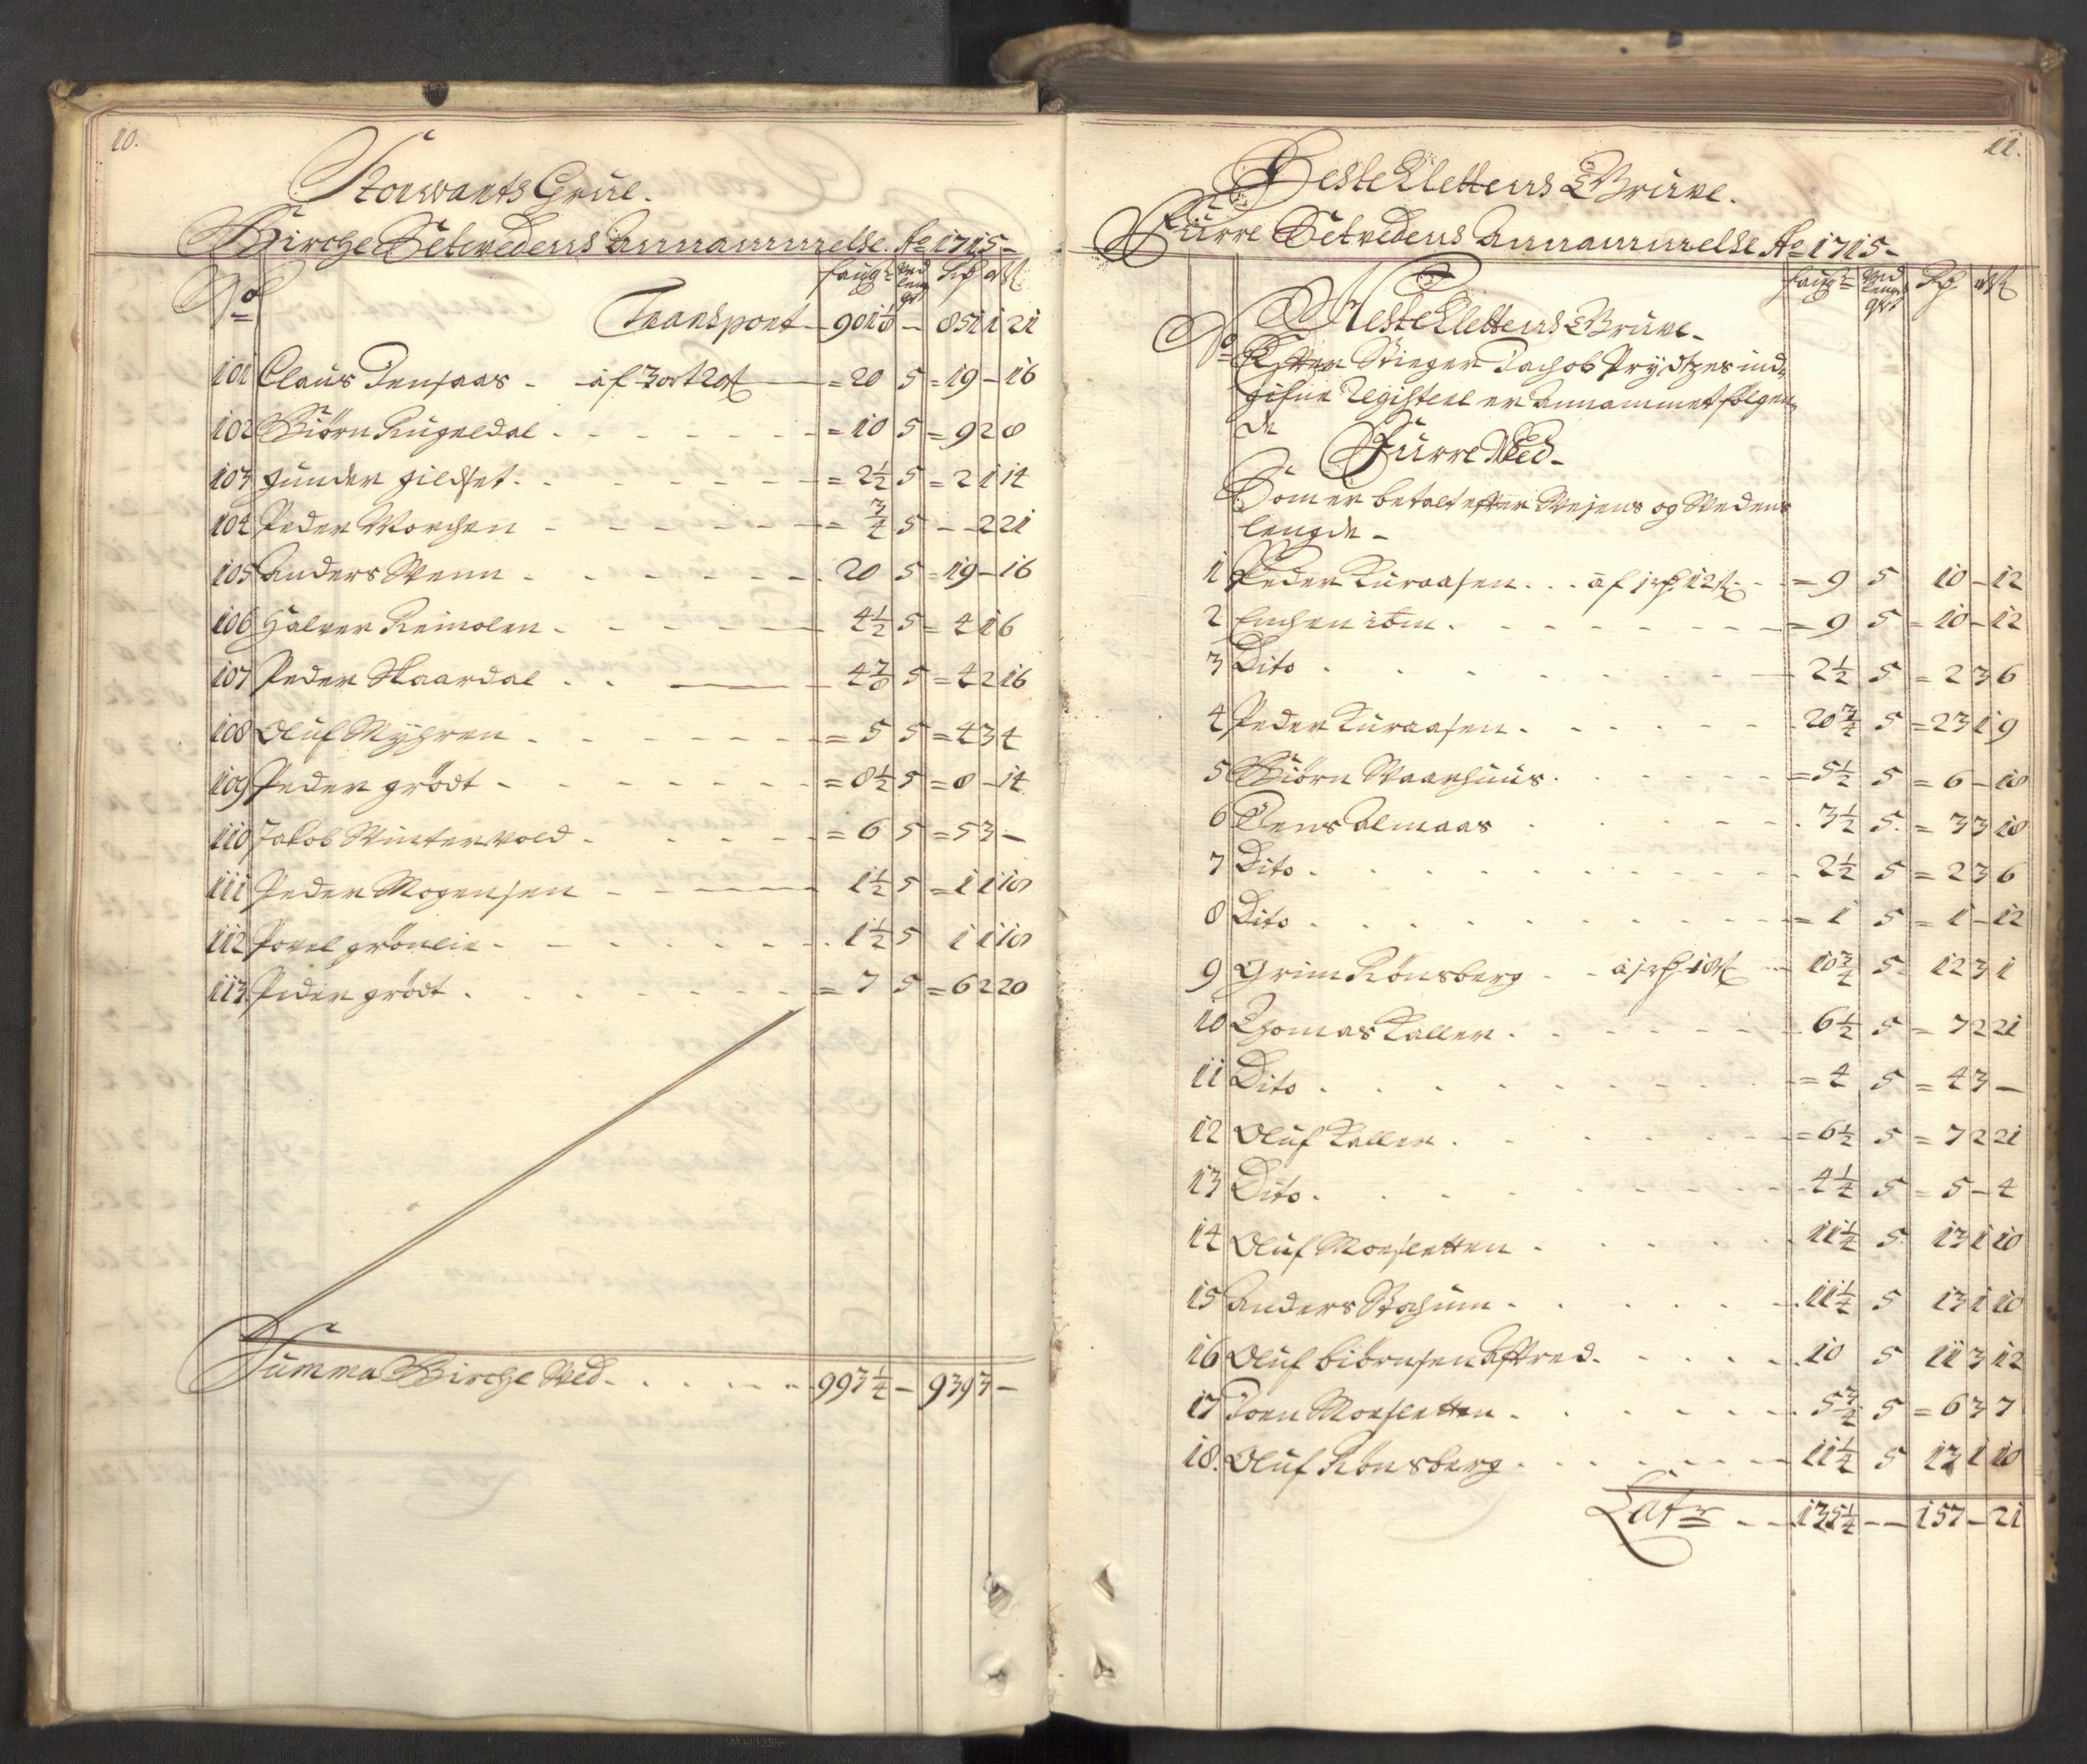 10.
Storwarts Grue.
Birche Setvedens Annammelse. Ao 1715-
No
faug: Ved leng gr Rd ort s
Transport - 901 1/8 - 851 1 21
101 Claus Jensaas - af 3 ort 20 s = 20 5 = 19 - 16
102 Biörn Kugeldal - = 10 5 = 9 2 8
103 gunder gildset - = 2 1/2 5 = 2 1 14
104 Peder Worchen - = 3/4 5 - - 2 21
105 Anders Wenn - 20 5 = 19 - 16
106 Halver Reinolen - 4 1/2 5 = 4 1 6
107 Peder Skaardal - 4 7/8 5 = 4 2 16
108 Oluf Mÿhren - = 5 5 = 4 3 4
109 Peder grödt - = 8 1/2 5 = 8 - 14
110 Jakob Wintervold - = 6 5 = 5 3 -
111 Peder Mogensen - 1 1/2 5 = 1 1 18
112 Povel grönlie - 1 1/2 5 1 1 18
113 Peder grödt - = 7 5 = 6 2 20
Summa Birche Ved - 993 1/4 - 939 3 -
11.
Hesteklettens Gruve.
Furre Setvedens Annammelse Ao 1715-
faug: Ved lengd gr Rd ort s
Hesteklettens Gruve-
No
Efter Stieger Jachob Prydtzes ind-
gifne Registere er Annammet følgen-
de
Furre Ved-
Som er betalt efter Vejens og Vedens
lengde-
1 Peder Kuraasen - af 1 rd 12 s - = 9 5 10 - 12
2 Enchen ibm - = 9 5 = 10 - 12
3 Dito - 2 1/2 5 = 2 3 6
4 Peder Kuraasen - 20 3/4 5 = 23 1 9
5 Biörn Skaarhuus - = 5 1/2 5 = 6 - 18
6 Jens Almaas - 3 1/2 5 = 3 3 18
7 Dito - 2 1/2 5 = 2 3 6
8 Dito - = 1 5 = 1 - 12
9 Grim Rönsberg - a 1 rd 18 s - 10 3/4 5 - 12 3 1
10 Thomas Galler - 6 1/2 5 = 7 2 21
11 Dito - = 4 5 = 4 3 -
12 Oluf Galler - = 6 1/2 5 = 7 2 21
13 Dito - 4 1/4 5 = 5 - 4
14 Oluf Moesletten - 11 1/4 5 13 1 10
15 Anders Stochum - 11 1/4 5 13 1 10
16 Oluf biörnsen Aftred - 10 5 11 3 12
17 Joen Moesletten - 5 3/4 5 = 6 3 7
18. Oluf Rönsberg - 11 1/4 5 13 1 10
Latr - - 135 1/4 - - 157 - 21